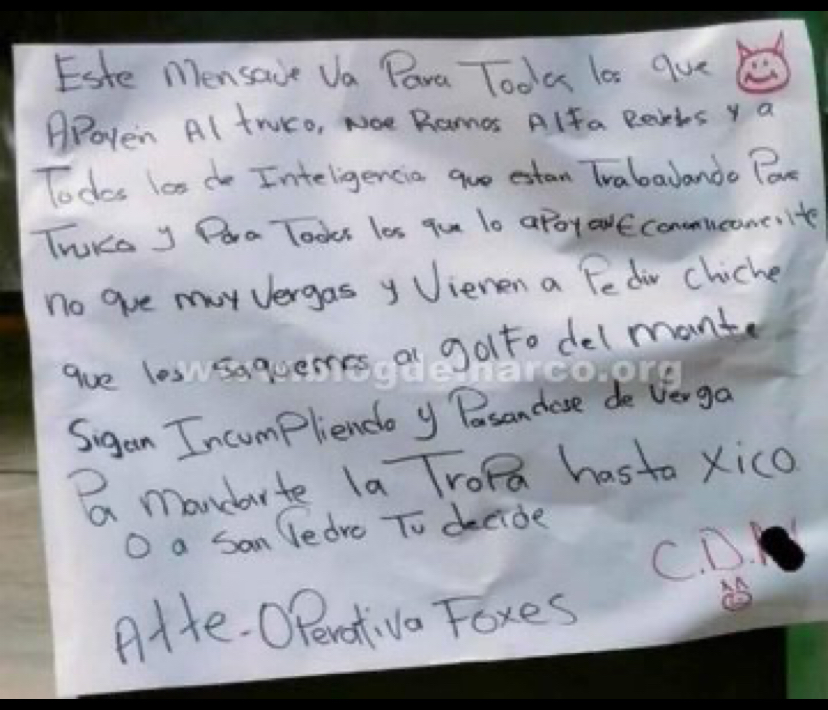 Este Mensaje Va Para Todos los que
APoyen Al truko, Noe Ramos Alfa y a
Todos los de Inteligencia que estan Trabajando Para
Truko y Para Todos los que lo apoyan Economicamente
no que muy Vergas y Vienen a Pedir chiche
que les saquemos al golfo del mante
www.blogdelnarco.org
Sigan IncumPliendo y Pasandose de Verga
Pa mandarte la TroPa hasta Xico
O a San Pedro Tu decide
C.D.
Atte-OPerativa Foxes